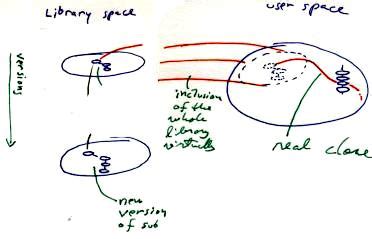 Library space
user space
versions
inclusion
of the
whole
library
virtually
real clone
new
version
of sub